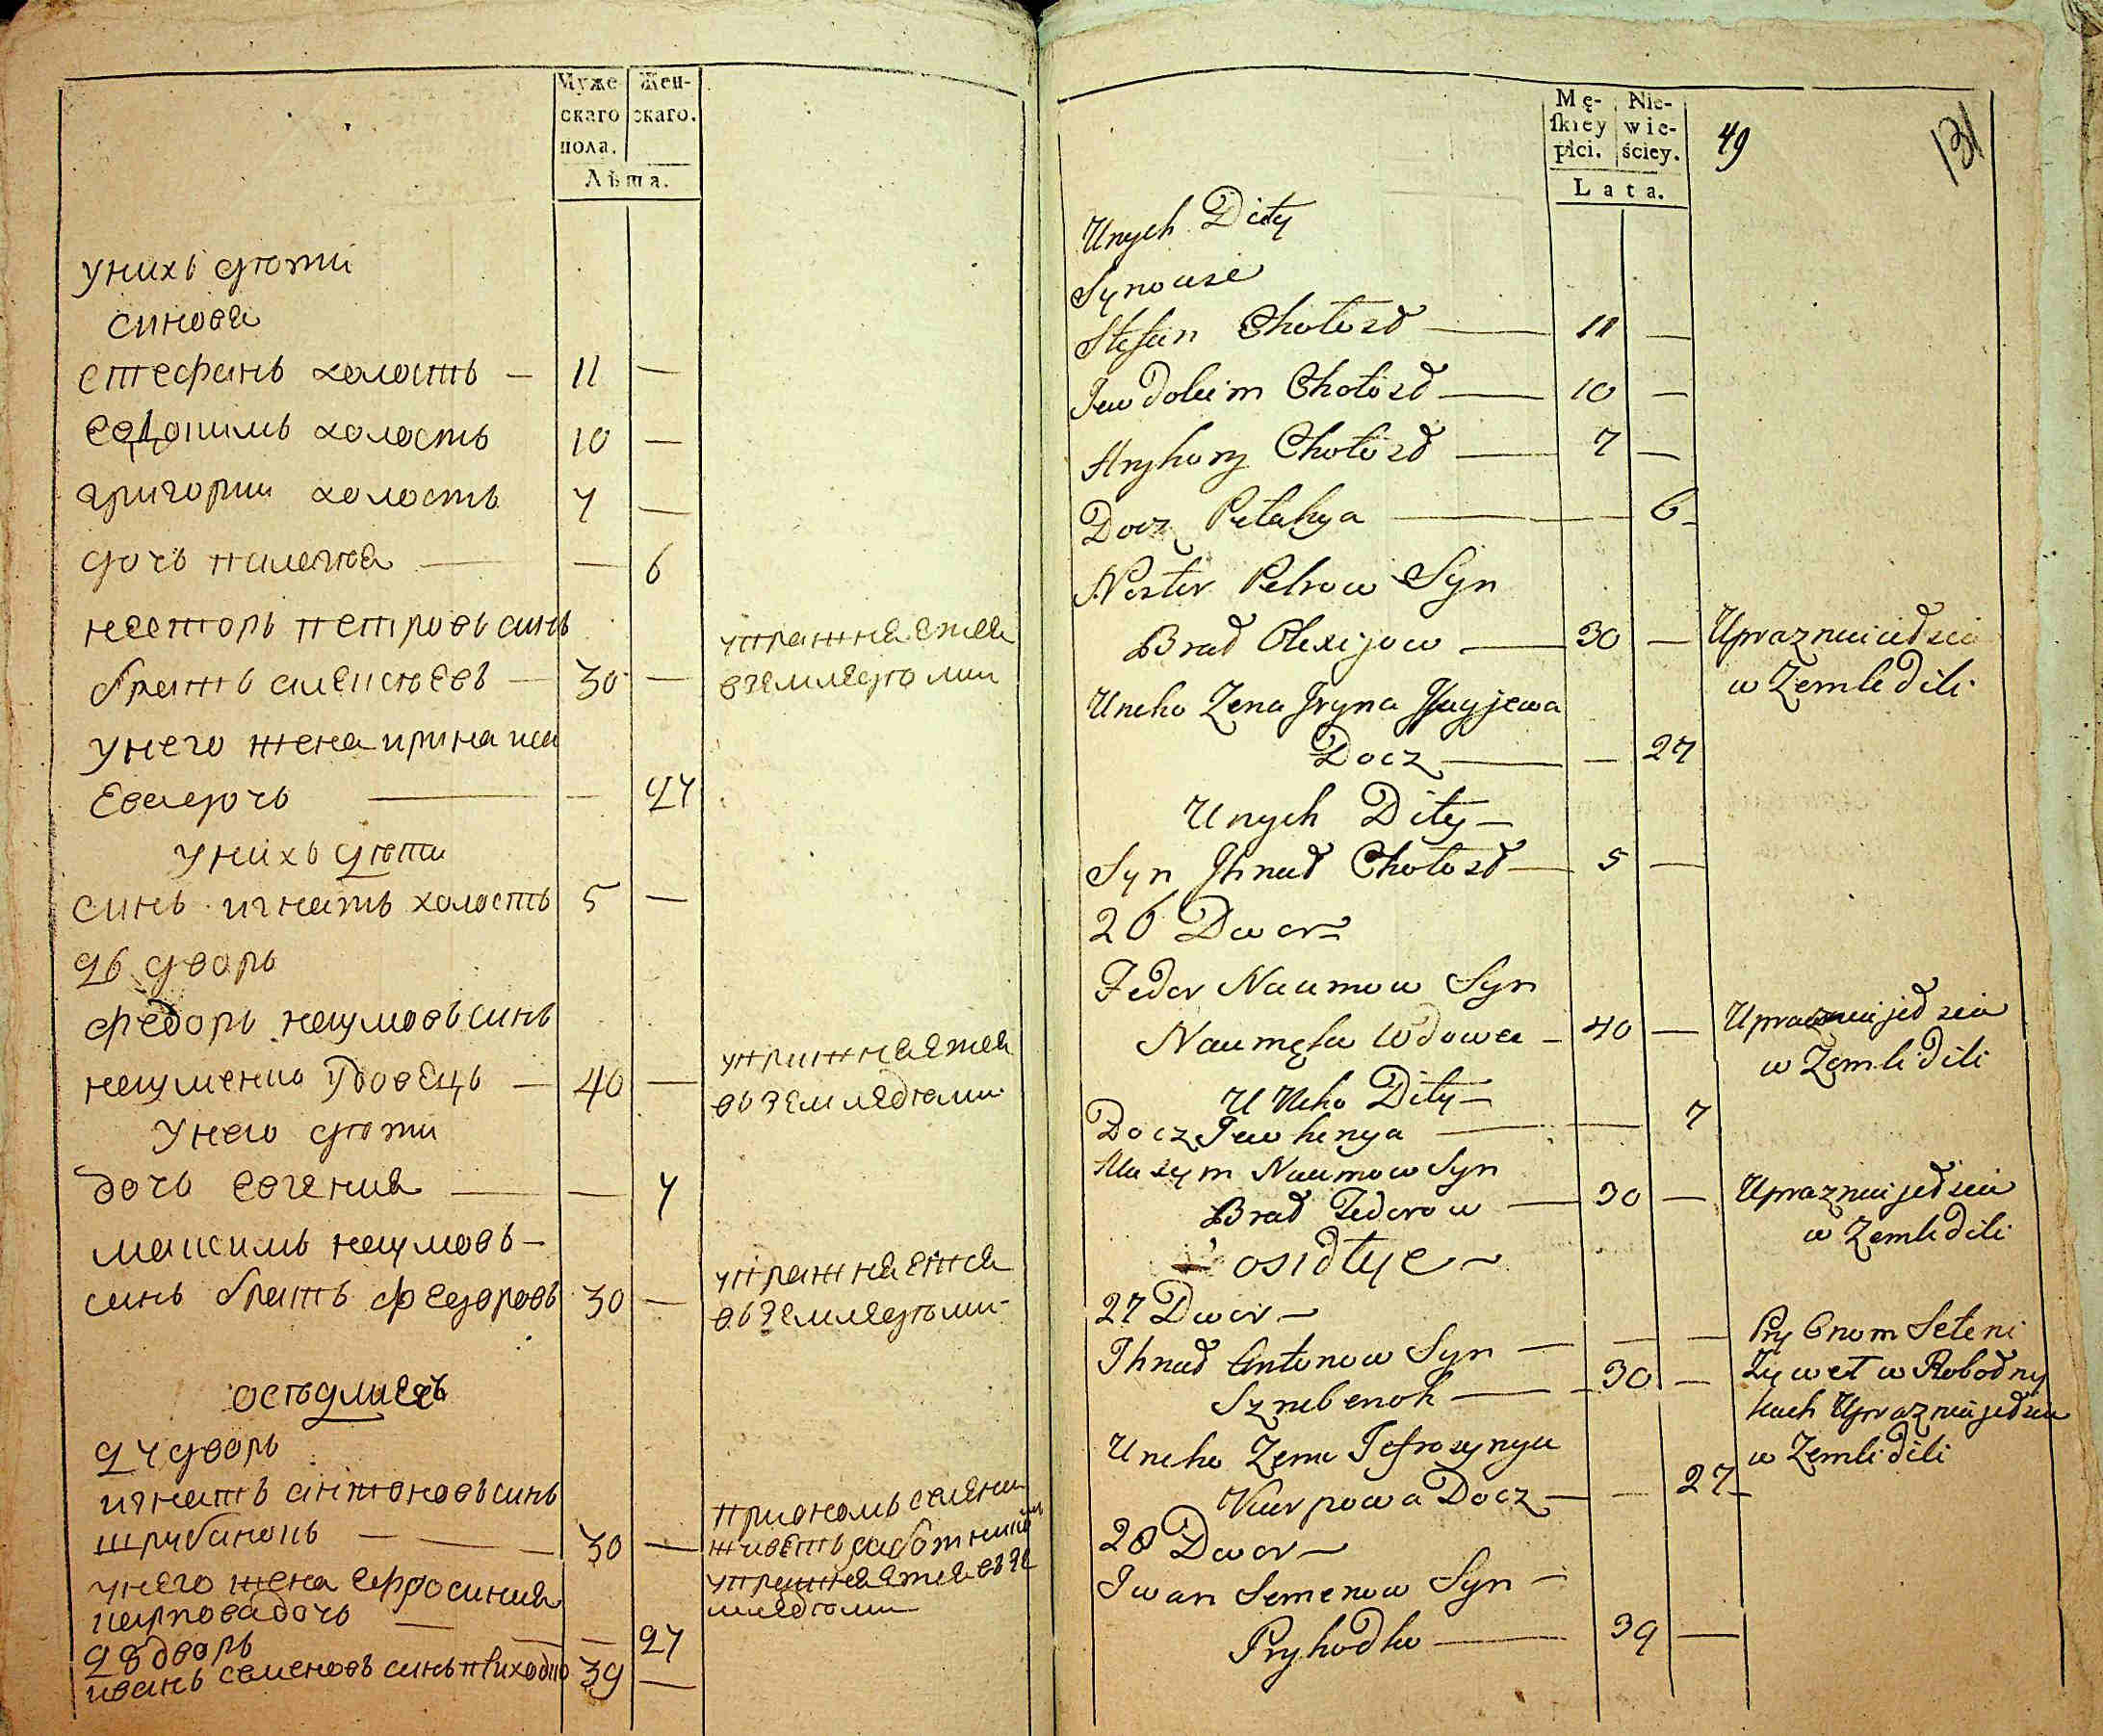 Муже
скаго
пола.
Жен-
скаго.
Лѣта.
унихъ дѣти
синовя
стефанъ холостъ — 11 —
евдокимъ холостъ 10 —
григории холостъ 7 —
дочь палагѣя — — 6
несторъ петровъ синъ
братъ алексѣевъ — 30 —
упражняется
вземледѣлии
унего жена ирина иса
ева дочь — — 27
унихъ дѣти
синъ игнатъ холостъ 5 —
26 дворъ
федоръ наумовъ синъ
науменко удовецъ — 40 —
упражняется
въземледѣлии
унего дѣти
дочь евгения — — 7
максимъ наумовъ —
синъ братъ федоровъ 30 —
упражняется
въземледѣлии
осѣдлиехъ
27 дворъ
игнатъ антоновъ синъ
шрубанокъ — 30 —
приономъ селени
живетъ работники
упражняется въ зе
мледѣлии
унего жена ефросиния
карповадочь — — 27
28 дворъ
иванъ семеновъ синъ приходко 39 —
Mę-
skiey
płci.
Nie-
wie-
ściey.
Lata.
49
131
Unych Dity
Synowie
Stefan Chołozd — 11 —
Jewdokim Chołozd — 10 —
Hryhory Chołozd — 7 —
Docz Pełahya — — 6
Nester Petrow Syn
Brad Olexijow — 30 — Uprazniaiedsia
w Zemledili
Uneho Zena Iryna Isayjewa
Docz — — 27
Unych Dity —
Syn Ihnad Chołozd — 5 —
26 Dwor
Fedor Naumow Syn
Naumęko Wdowec — 40 — Uprazniajedsia
w Zemlidili
U Neho Dity —
Docz Jewhenya — — 7
Maxym Naumow Syn
Brad Fedorow — 30 — Uprazniajedsia
w Zemlidili
osidłye —
27 Dwor —
Ihnad Antonow Syn — — — Pry Onom Seleni
Szrubenok — 30 — Zywet w Robodny
kach Uprazniajedsia
w Zemlidili
Uneho Zena Jefrosynya
Karpowa Docz — — 27
28 Dwor —
Iwan Semenow Syn —
Pryhodko — 39 —